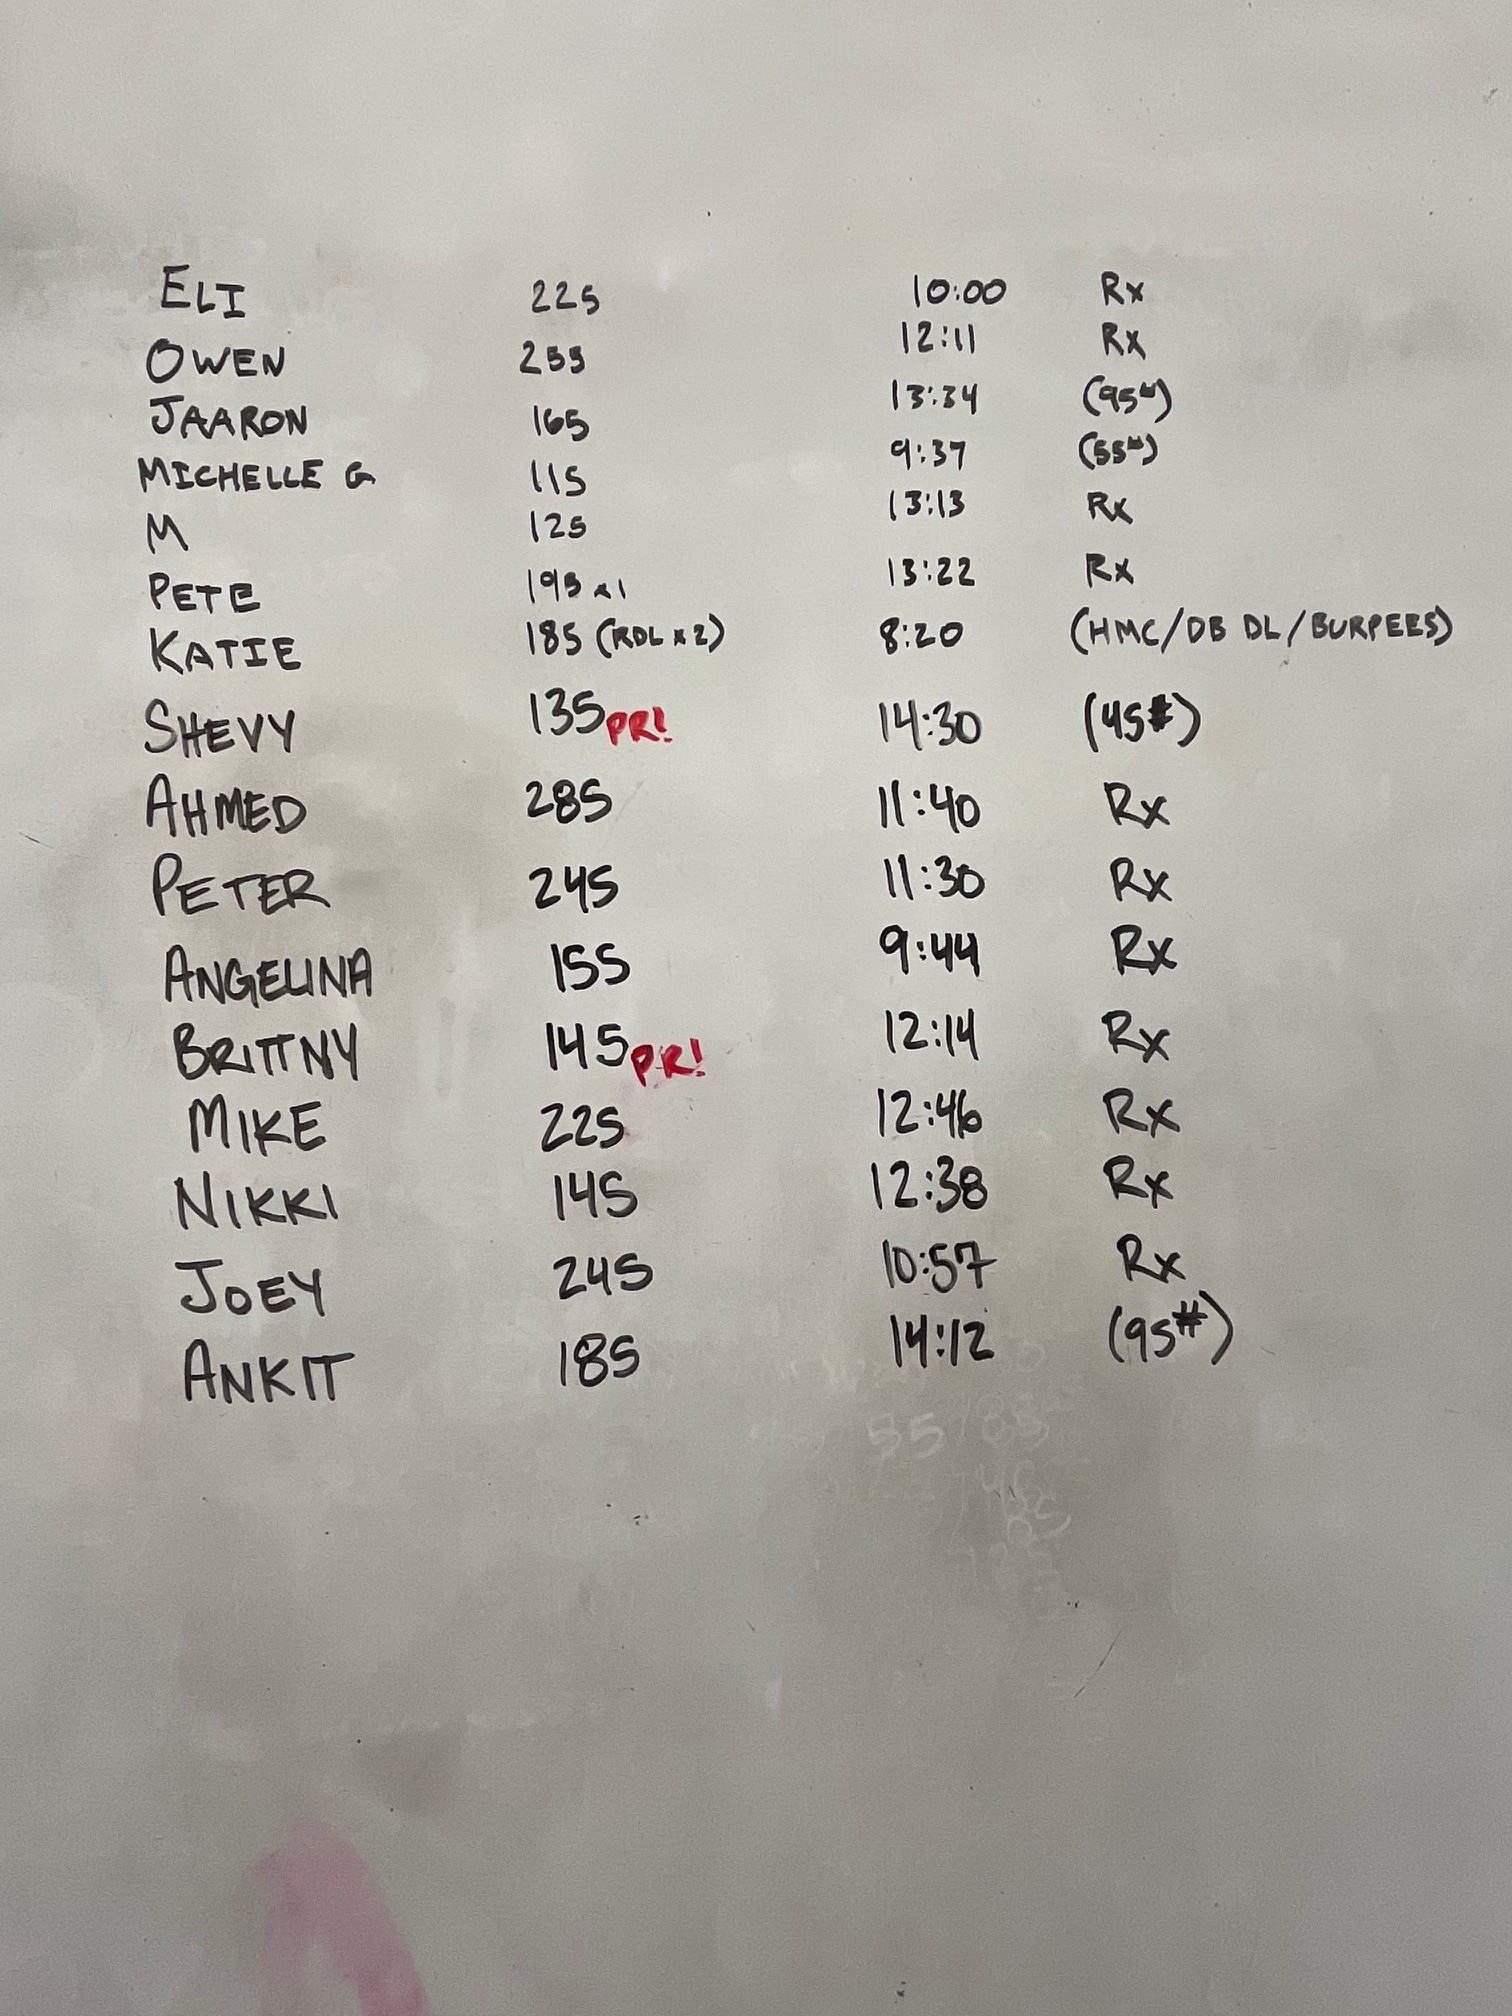 ELI 225 10:00 Rx
OWEN 255 12:11 Rx
JAARON 165 13:34 (95#)
MICHELLE G 115 9:37 (55#)
M 125 13:13 Rx
PETE 195 x1 13:22 Rx
KATIE 185 (RDL x2) 8:20 (HMC/DB DL/BURPEES)
SHEVY 135 PR! 14:30 (45#)
AHMED 285 11:40 Rx
PETER 245 11:30 Rx
ANGELINA 155 9:44 Rx
BRITTNY 145 PR! 12:14 Rx
MIKE 225 12:46 Rx
NIKKI 145 12:38 Rx
JOEY 245 10:57 Rx
ANKIT 185 14:12 (95#)